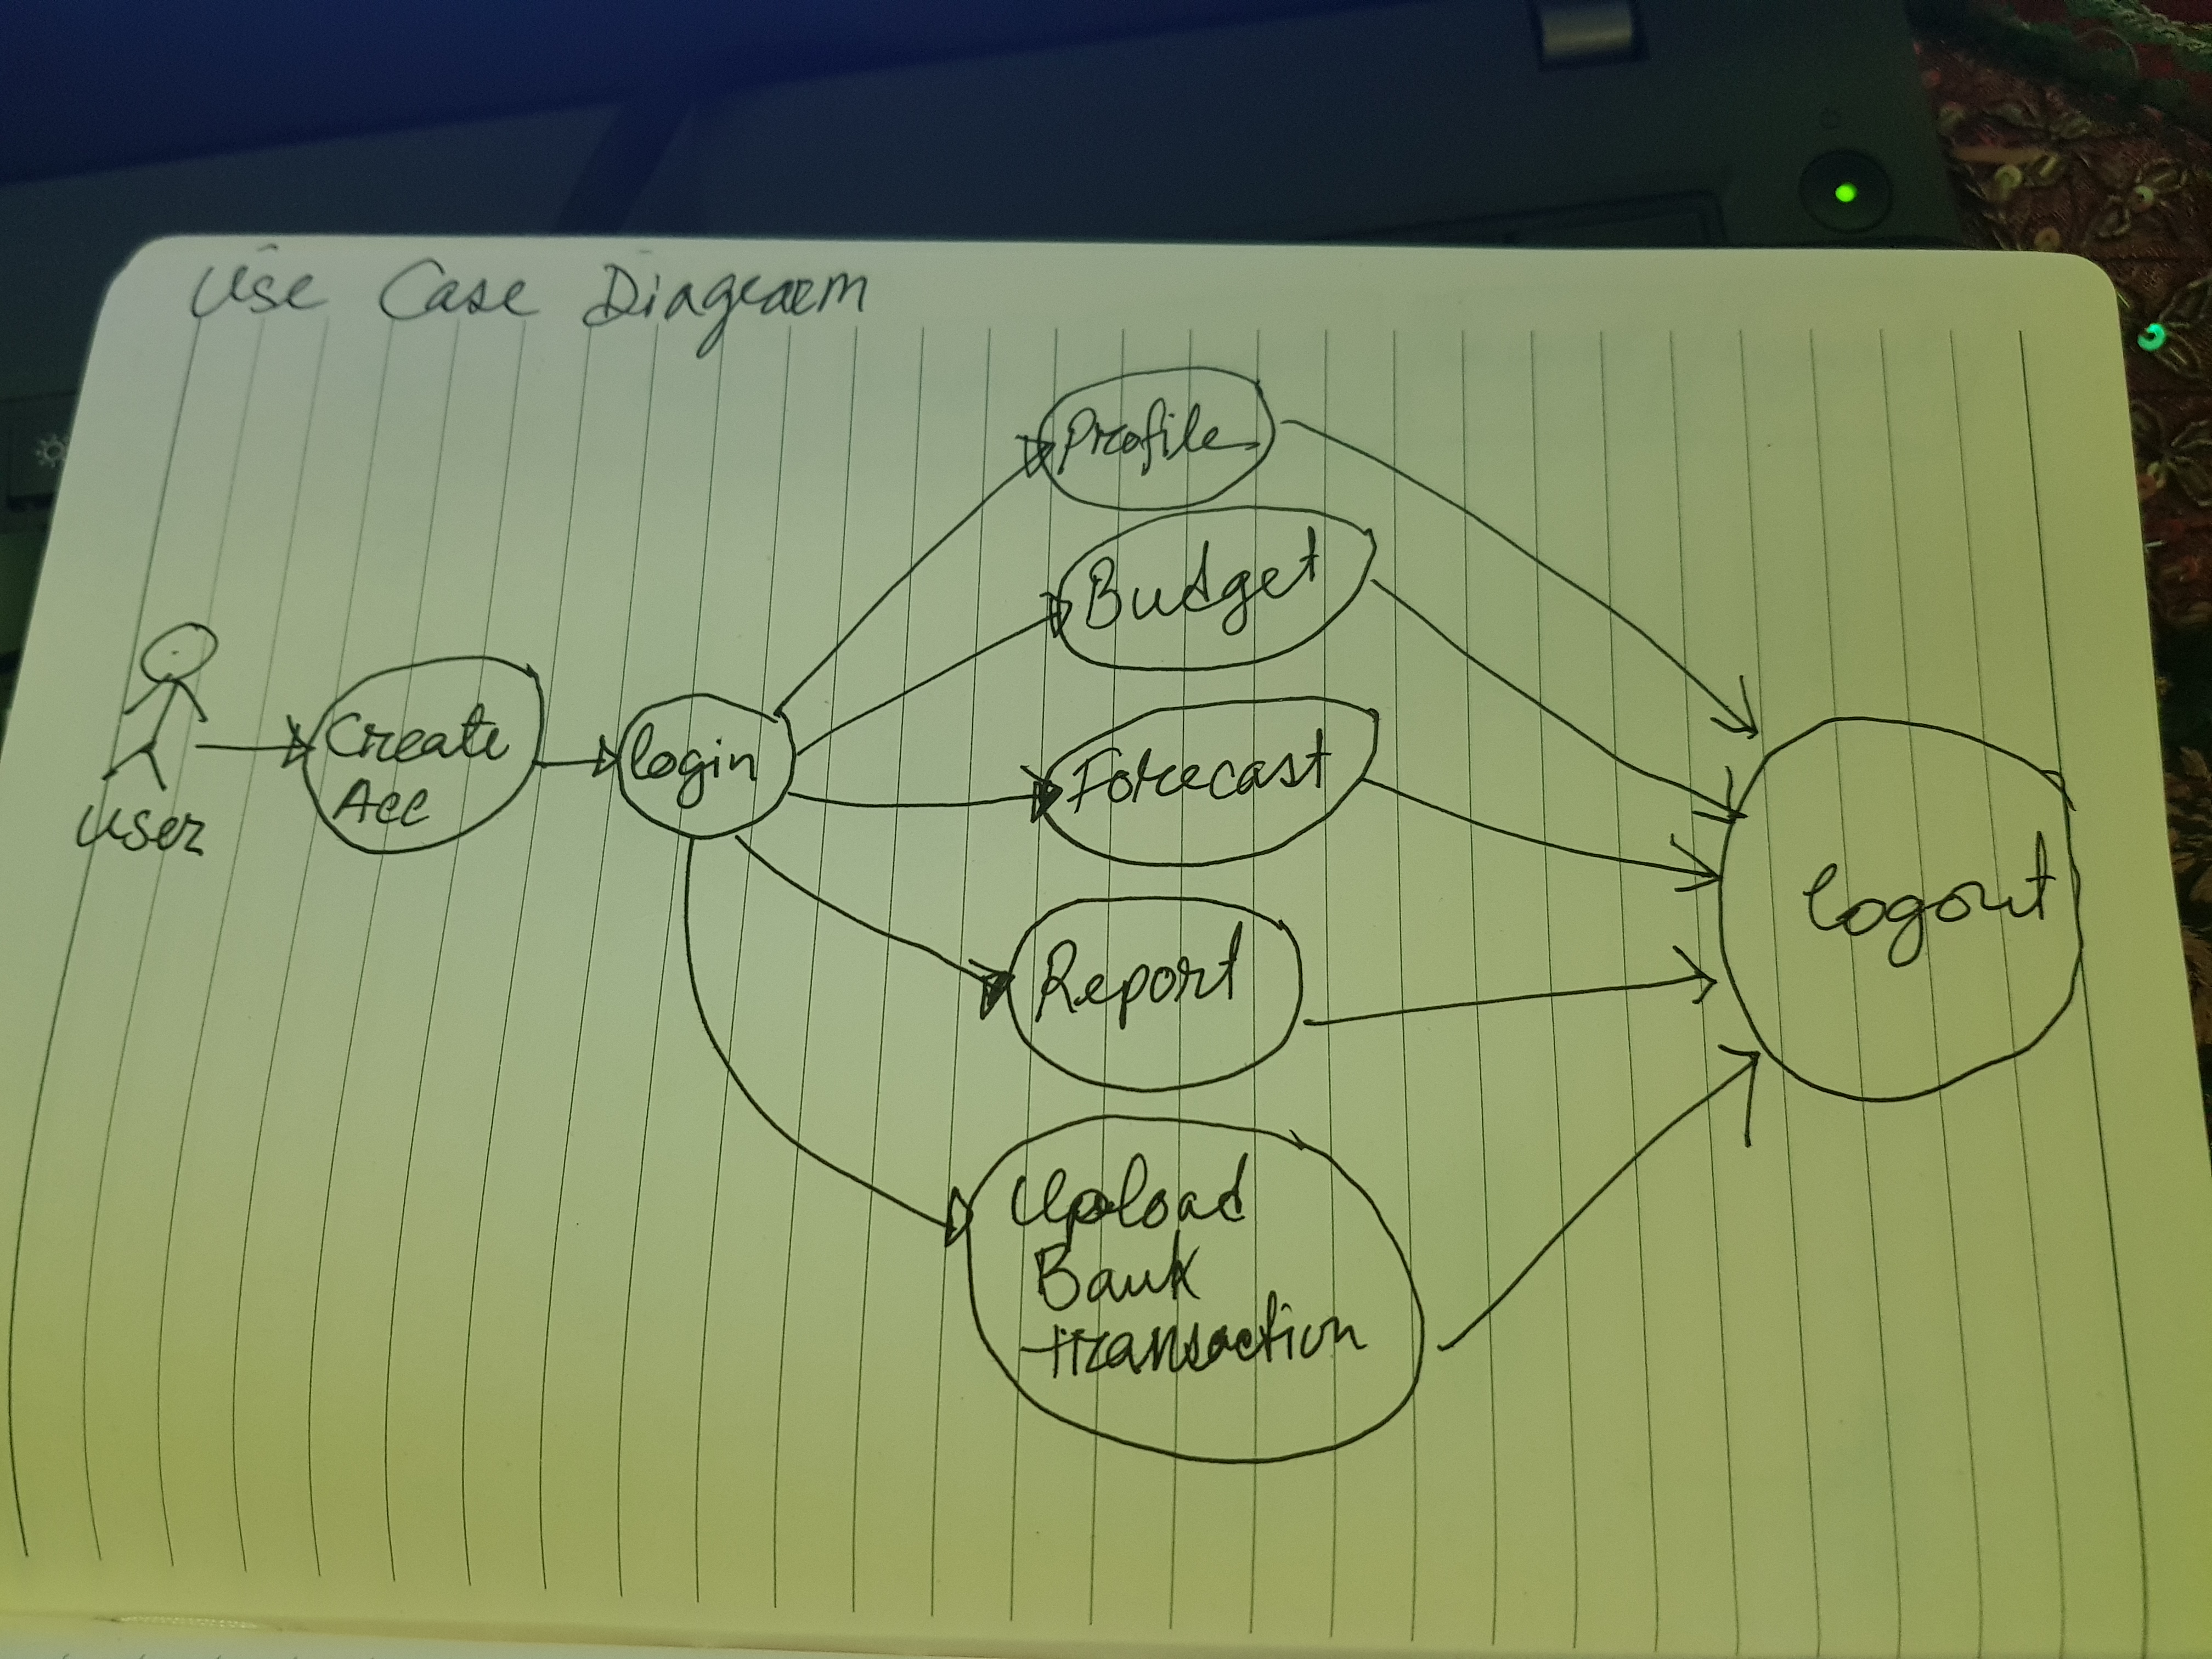 Use Case Diagram
User
Create
Acc
login
Profile
Budget
Forecast
Report
Upload
Bank
transaction
logout